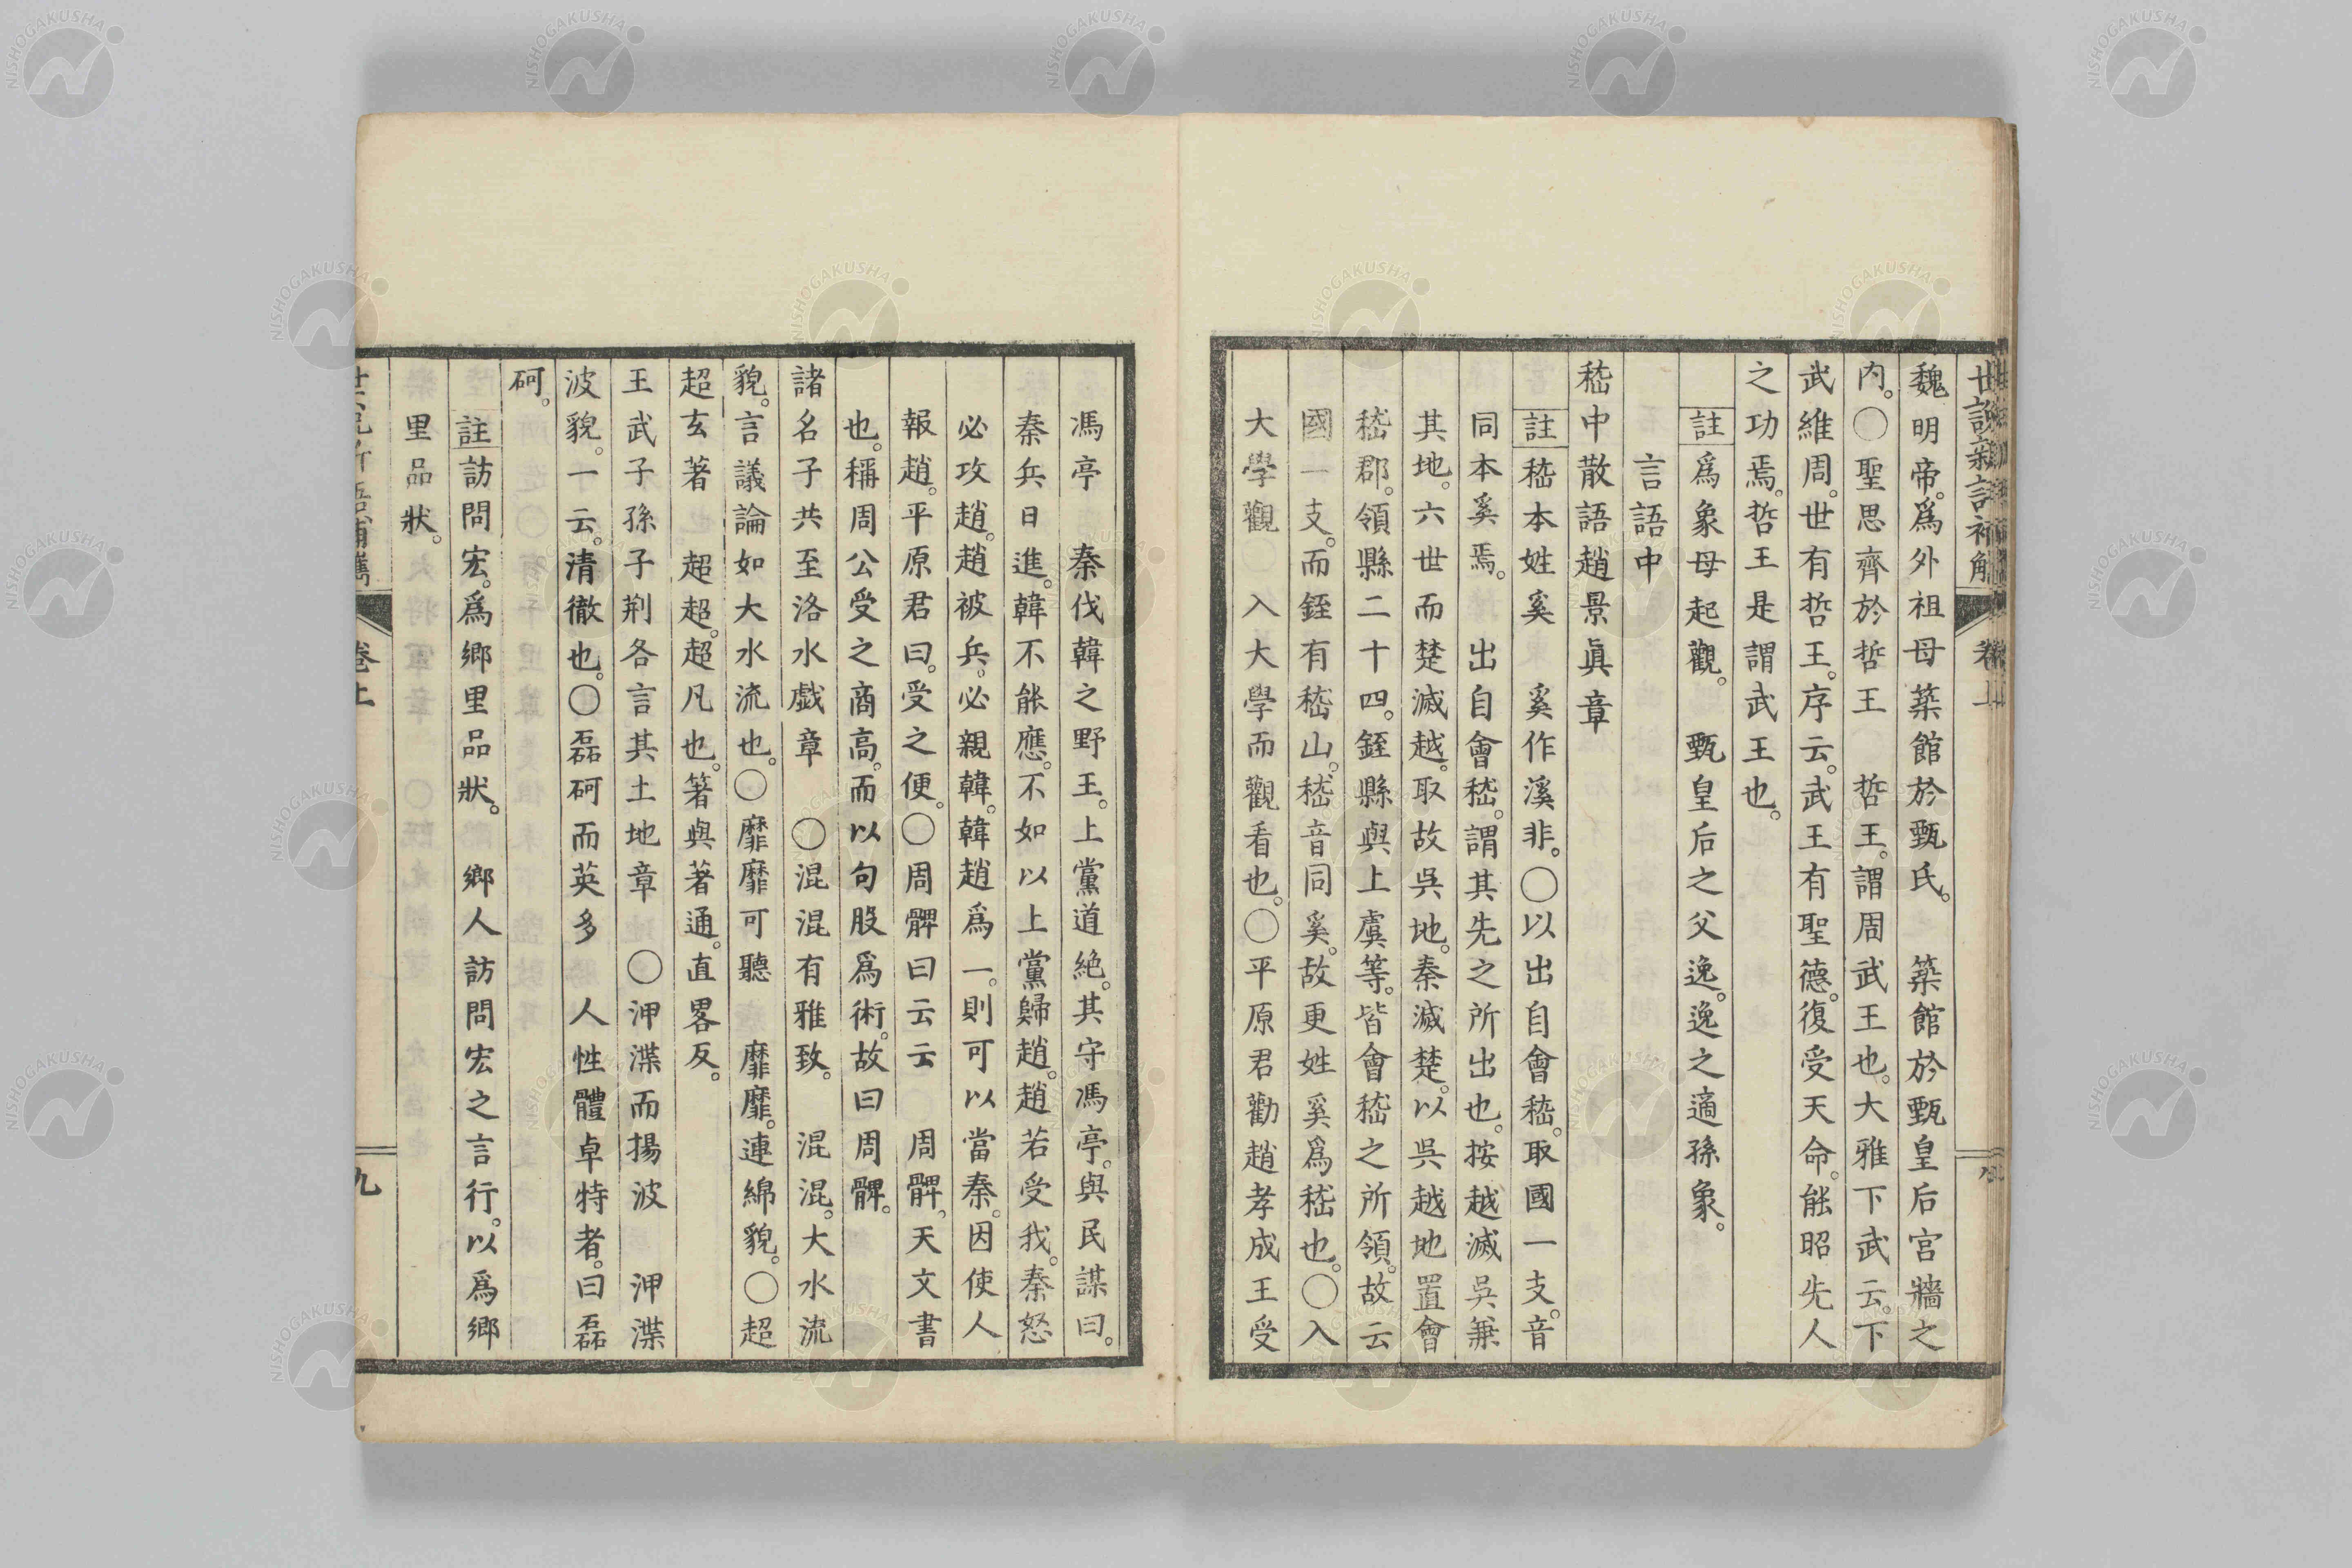 魏明帝。爲外祖母築館於甄氏。 築館於甄皇后宮牆之
内。〇聖思齊於哲王 哲王。謂周武王也。大雅下武云。下
武維周。世有哲王。序云。武王有聖德。復受天命。能昭先人
之功焉。哲王是謂武王也。
註爲象母起觀。 甄皇后之父逸。逸之適孫象。
言語中
嵇中散語趙景眞章
註嵇本姓奚 奚作溪非。〇以出自會嵇。取國一支。音
同本奚焉。 出自會嵇。謂其先之所出也。按越滅吳兼
其地。六世而楚滅越。取故吳地。秦滅楚。以吳越地置會
嵇郡。領縣二十四。銍縣與上虞等。皆會嵇之所領。故云
國一支。而銍有嵇山。嵇音同奚。故更姓奚爲嵇也。〇入
大學觀 入大學而觀看也。〇平原君勸趙孝成王受
馮亭 秦伐韓之野王。上黨道絶。其守馮亭。與民謀曰。
秦兵日進。韓不能應。不如以上黨歸趙。趙若受我。秦怒
必攻趙。趙被兵。必親韓。韓趙爲一。則可以當秦。因使人
報趙。平原君曰。受之便。〇周髀曰云云 周髀。天文書
也。稱周公受之商高。而以句股爲術。故曰周髀。
諸名子共至洛水戲章 〇混混有雅致。 混混。大水流
貌。言議論如大水流也。〇靡靡可聽 靡靡。連綿貌。〇超
超玄著 超超。超凡也。箸與著通。直畧反。
王武子孫子荆各言其土地章 〇浹渫而揚波 浹渫
波貌。一云。清徹也。〇磊砢而英多 人性體卓特者。曰磊
砢。
註訪問宏。爲鄉里品狀。 鄉人訪問宏之言行。以爲鄉
里品狀。
卷上
九